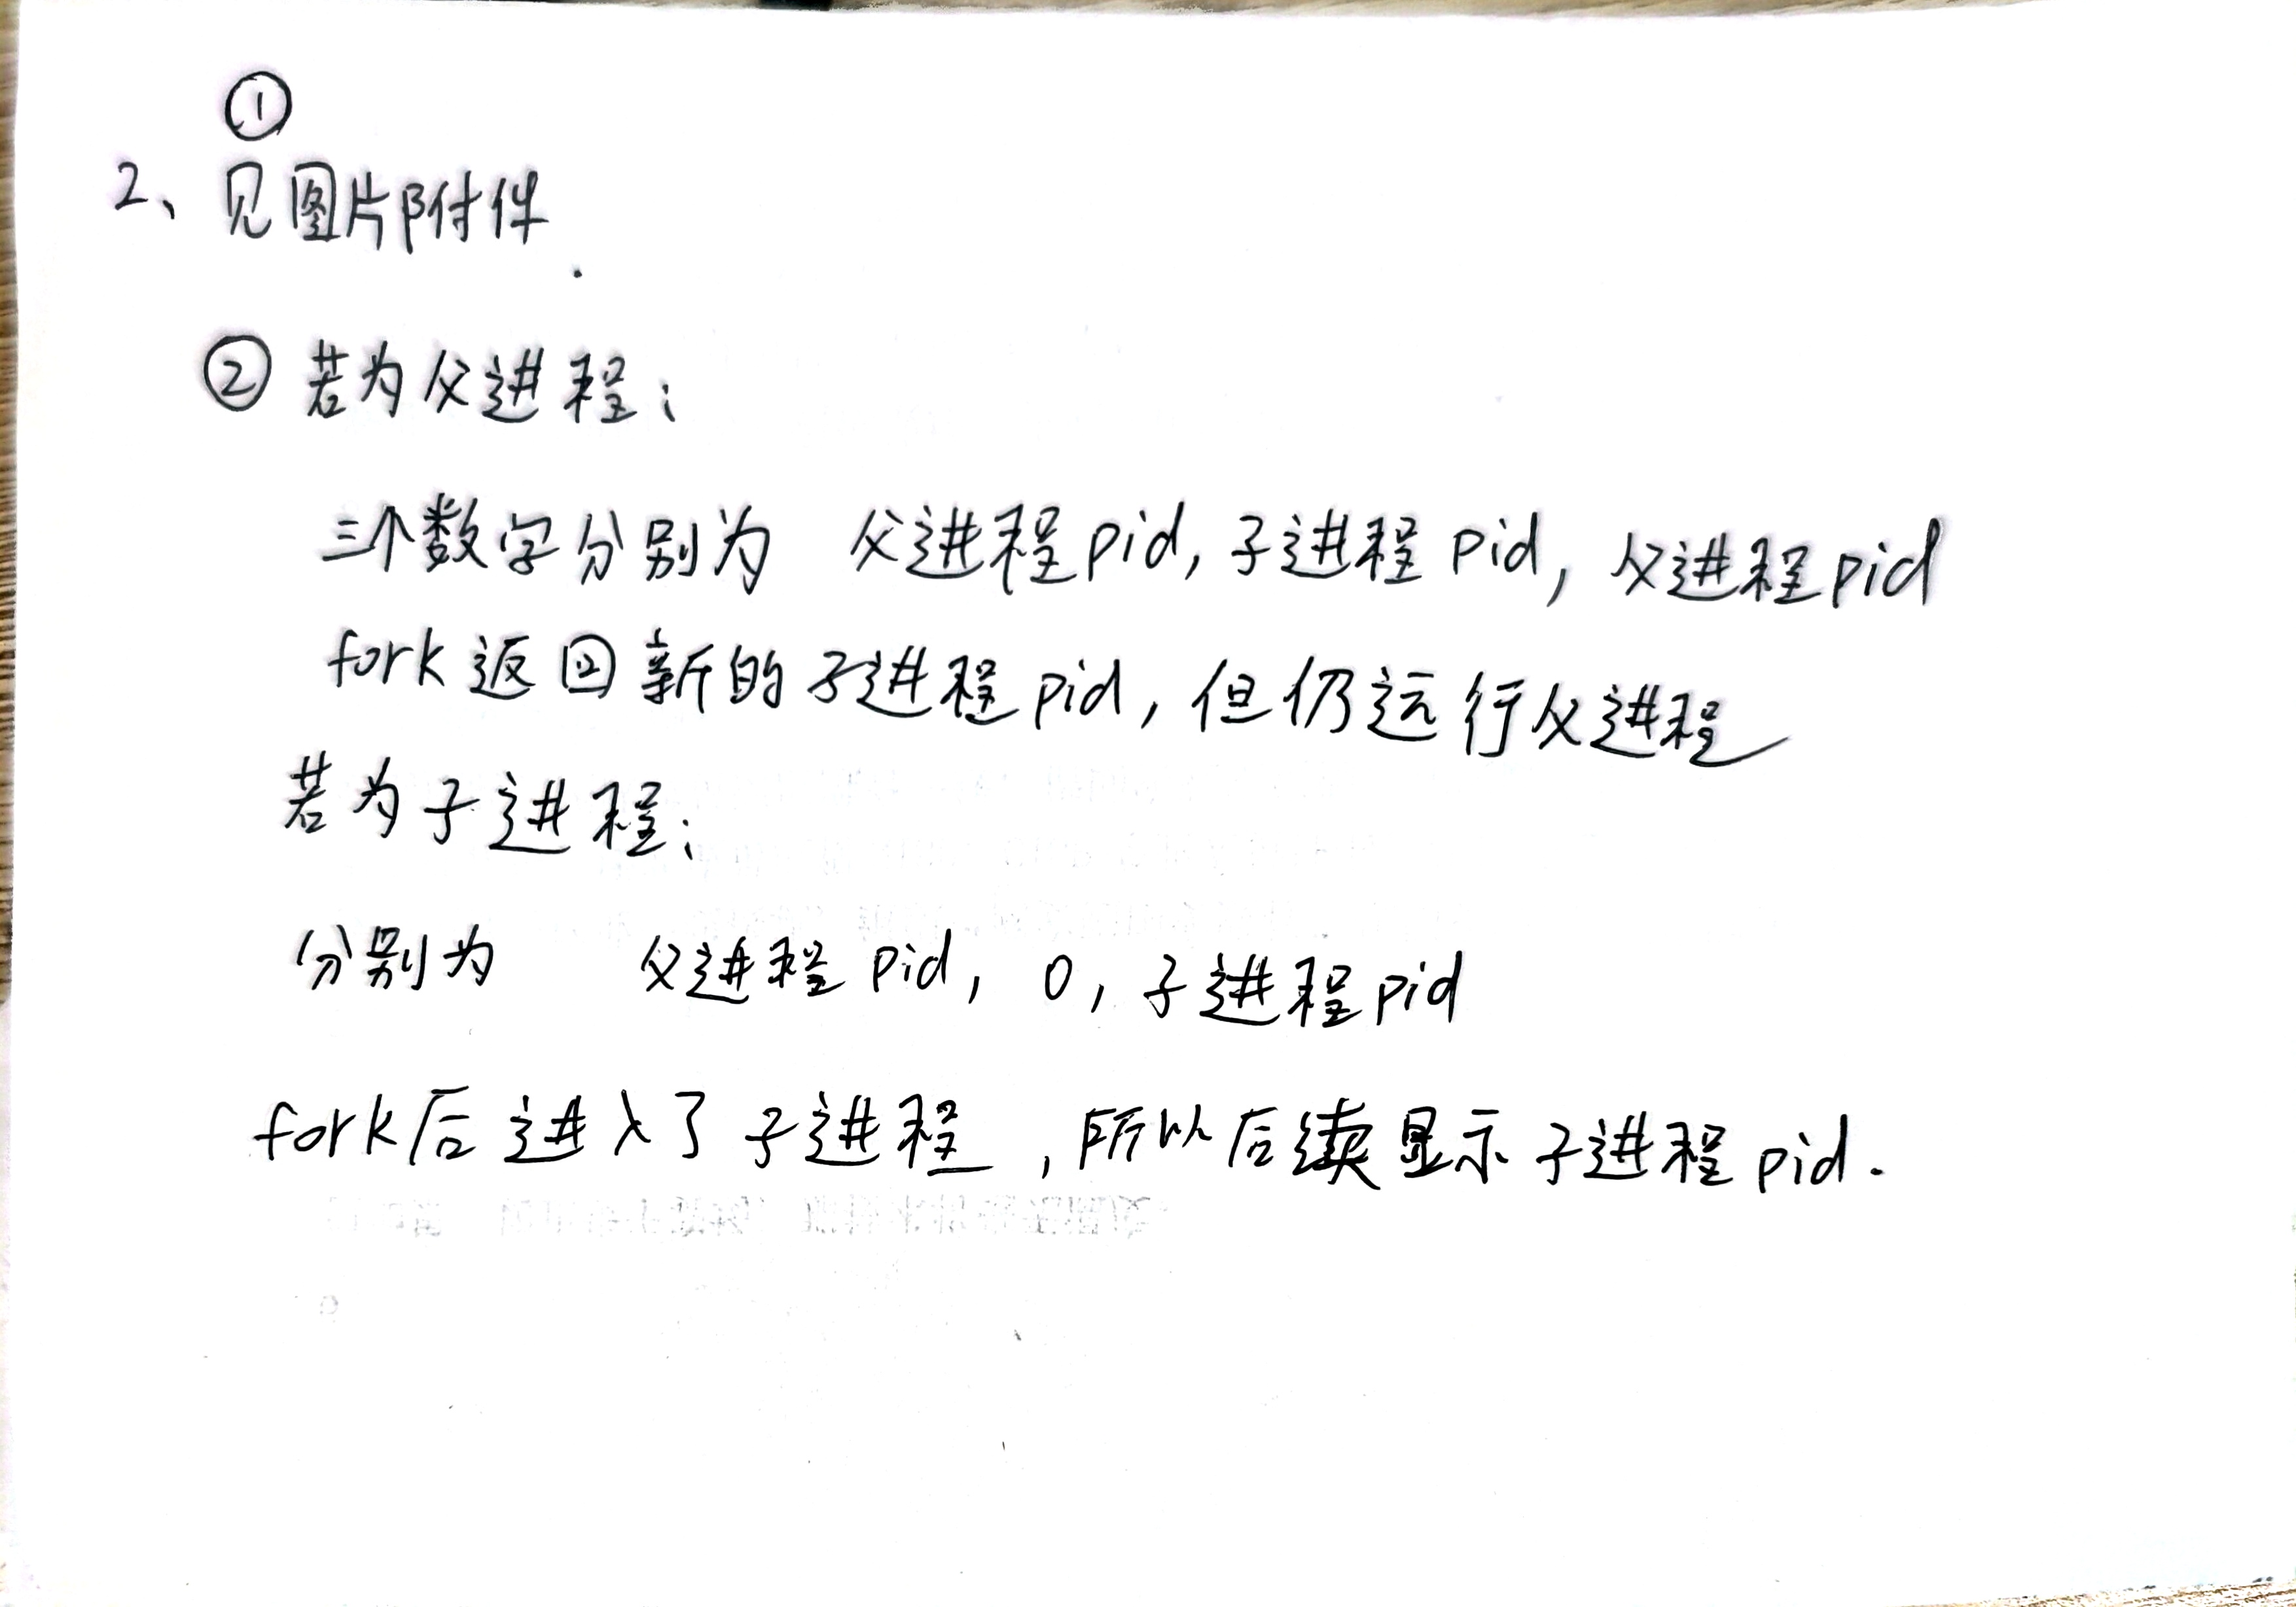 ①
2、见图片附件.
② 若为父进程:
三个数字分别为 父进程pid, 子进程 pid, 父进程pid
fork返回新的子进程pid, 但仍运行父进程
若为子进程:
分别为 父进程 pid, 0, 子进程pid
fork后进入了子进程, 所以后续显示子进程 pid.